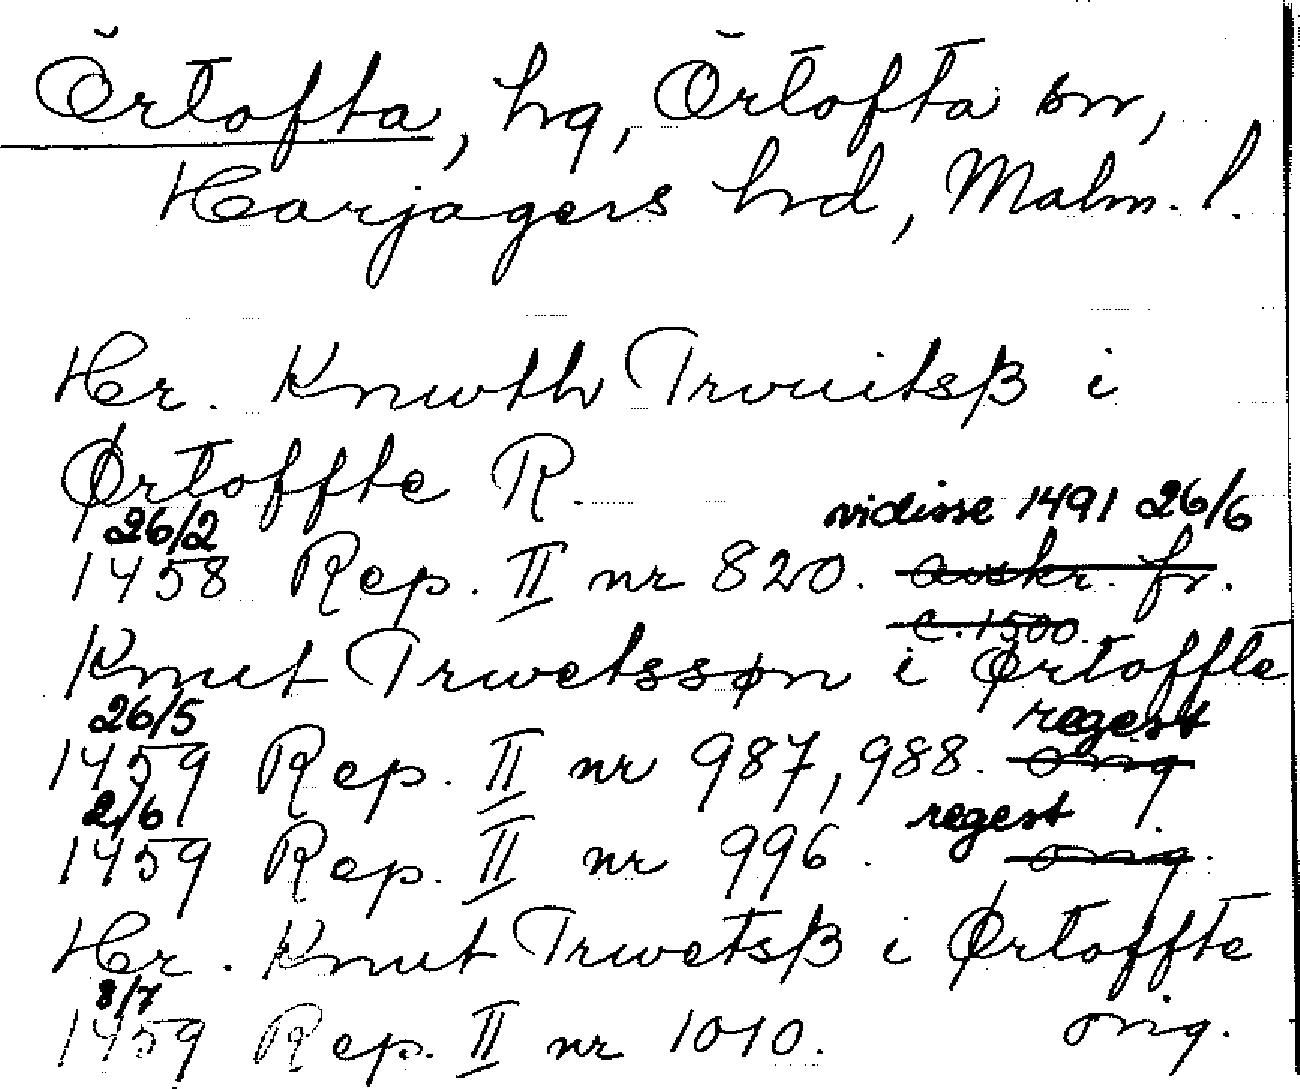 Örtofta, hg, Örtofta sn,
Harjagers hrd, Malm. l.
Hr. Knwth Trwuitsß i
Ørtoffte R.
26/2 vidisse 1491 26/6
1458 Rep. II nr 820. avskr. fr.
c. 1500.
Knut Trwetssøn i Ørtoffte
26/5 regest
1459 Rep. II nr 987, 988. orig
2/6 regest
1459 Rep. II nr 996. orig.
Hr. Knut Trwetsß i Ørtoffte
8/7
1459 Rep. II nr 1010. orig.